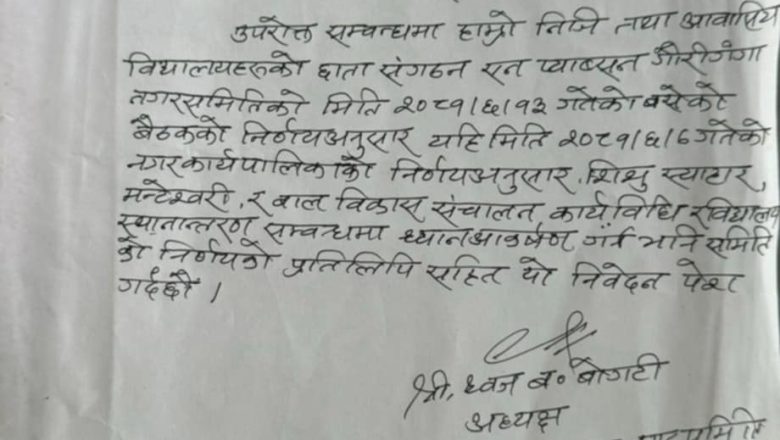 उपरोक्त सम्बन्धमा हाम्रो निजि तथा आवासिय
विद्यालयहरुको छाता संगठन एन प्याब्सन गौरीगंगा
नगरसमितिको मिति २०८१/६/१३ गतेको बसेको
बैठकको निर्णयअनुसार यहि मिति २०८१/६/६ गतेको
नगरकार्यपालिकाको निर्णयअनुसार, शिशु स्याहार,
मन्टेश्वरी, र बाल विकास संचालन कार्यविधि र विद्यालय
स्थानान्तरण सम्बन्धमा ध्यानआकर्षण गर्न भनि समिति
को निर्णयको प्रतिलिपि सहित यो निवेदन पेश
गर्दछौ ।
श्री, ध्वज ब॰ बोगटी
अध्यक्ष